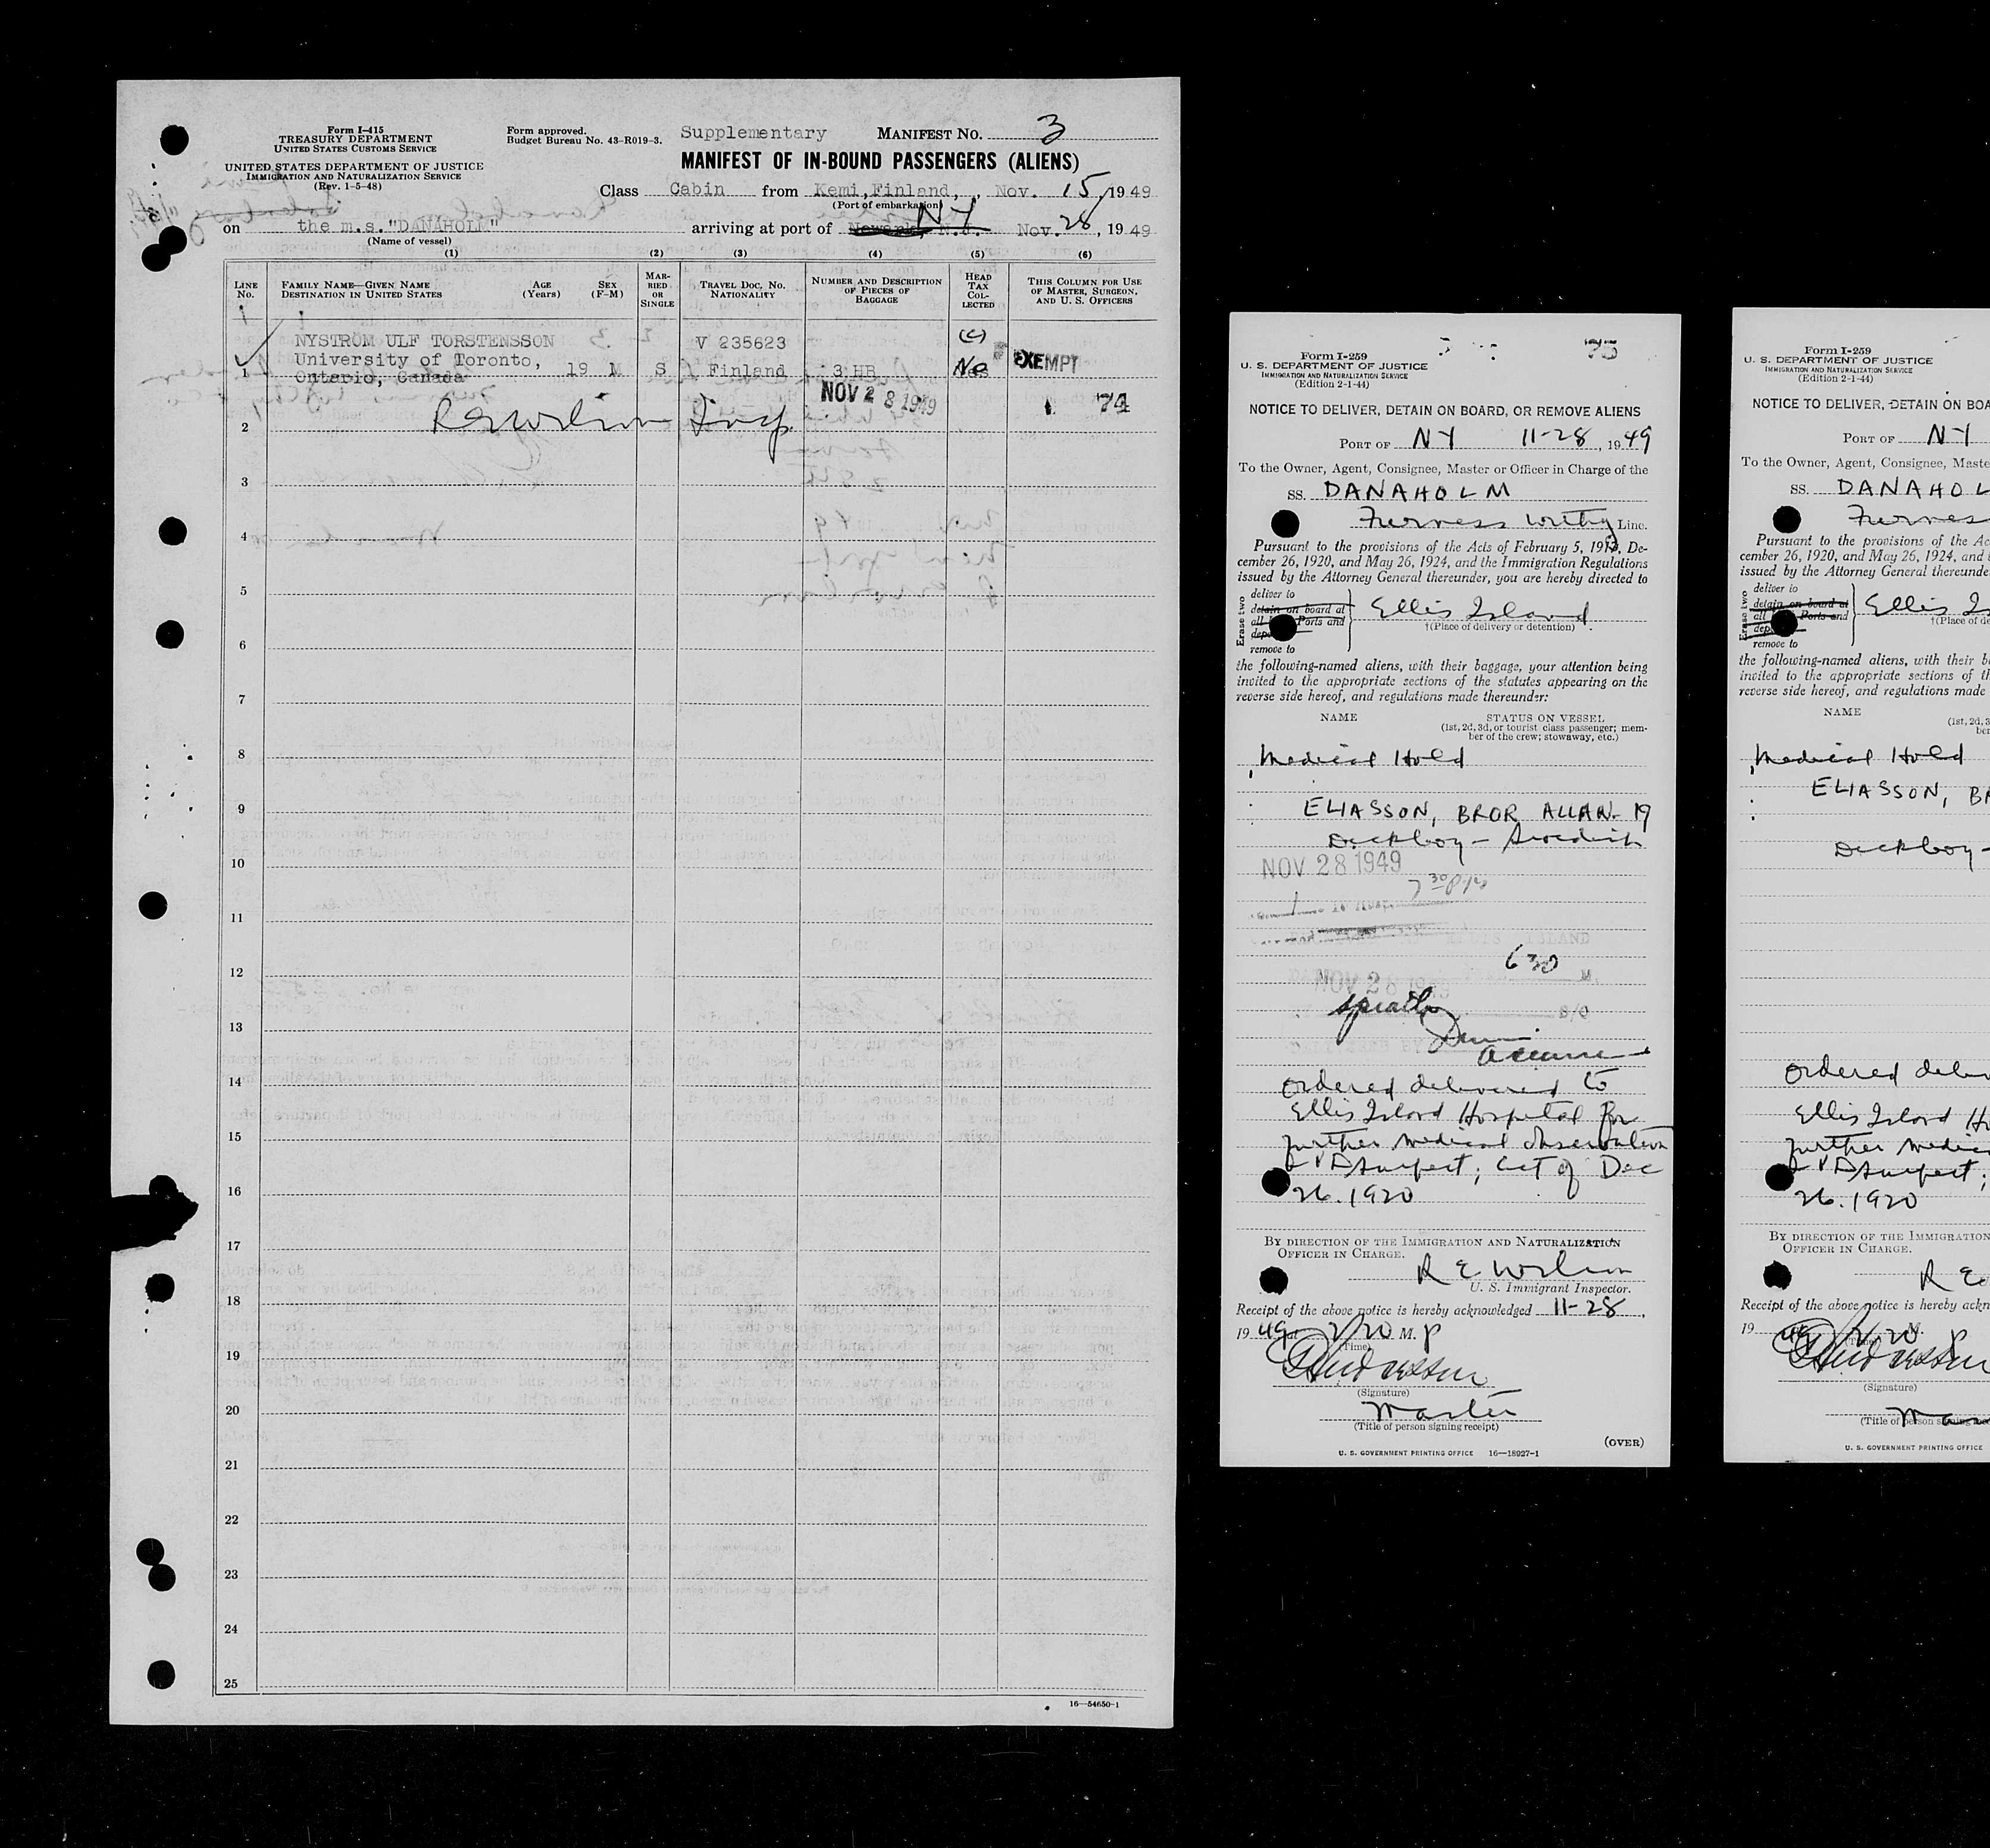 Form I-415
TREASURY DEPARTMENT
UNITED STATES CUSTOMS SERVICE
UNITED STATES DEPARTMENT OF JUSTICE
IMMIGRATION AND NATURALIZATION SERVICE
(Rev. 1-5-48)
Form approved.
Budget Bureau No. 43-R019-3.
Supplementary MANIFEST NO. 3
MANIFEST OF IN-BOUND PASSENGERS (ALIENS)
Class Cabin from Kemi, Finland, , Nov. 15, 1949
(Port of embarkation)
on the m.s. "DANAHOLM" arriving at port of Newark, N.J. NY Nov. 28, 1949
(Name of vessel)
(1) (2) (3) (4) (5) (6)
LINE NO. FAMILY NAME—GIVEN NAME DESTINATION IN UNITED STATES AGE (Years) SEX (F-M) MARRIED OR SINGLE TRAVEL DOC. NO. NATIONALITY NUMBER AND DESCRIPTION OF PIECES OF BAGGAGE HEAD TAX COLLECTED THIS COLUMN FOR USE OF MASTER, SURGEON, AND U. S. OFFICERS
NYSTRÖM ULF TORSTENSSON V 235623 (c)
University of Toronto,
1 Ontario, Canada 19 M S Finland 3 HB No EXEMPT
NOV 28 1949 74
2 R E Wilson Insp.
3
4
5
6
7
8
9
10
11
12
13
14
15
16
17
18
19
20
21
22
23
24
25
16—54650-1
75
Form I-259
U. S. DEPARTMENT OF JUSTICE
IMMIGRATION AND NATURALIZATION SERVICE
(Edition 2-1-44)
NOTICE TO DELIVER, DETAIN ON BOARD, OR REMOVE ALIENS
PORT OF NY 11-28, 1949
To the Owner, Agent, Consignee, Master or Officer in Charge of the
SS. DANAHOLM
Furness Withy Line.
Pursuant to the provisions of the Acts of February 5, 1917, De-
cember 26, 1920, and May 26, 1924, and the Immigration Regulations
issued by the Attorney General thereunder, you are hereby directed to
Erase two
deliver to
detain on board at
all Ports and
remove to
Ellis Island
†(Place of delivery or detention)
the following-named aliens, with their baggage, your attention being
invited to the appropriate sections of the statutes appearing on the
reverse side hereof, and regulations made thereunder:
NAME STATUS ON VESSEL
(1st, 2d, 3d, or tourist class passenger; mem-
ber of the crew; stowaway, etc.)
Medical Hold
ELIASSON, BROR ALLAN 19
Deckboy - Swedish
NOV 28 1949
7 30 P.M.
ELLIS ISLAND
630 M.
NOV 28 1949
ordered delivered to
Ellis Island Hospital for
further medical observation
VD suspect; act of Dec
26. 1920
BY DIRECTION OF THE IMMIGRATION AND NATURALIZATION
OFFICER IN CHARGE.
R E Wilson
U. S. Immigrant Inspector.
Receipt of the above notice is hereby acknowledged 11-28,
1949 at 2/20 M. P
(Time)
(Signature)
Master
(Title of person signing receipt)
(OVER)
U. S. GOVERNMENT PRINTING OFFICE 16—18927-1
Form I-259
U. S. DEPARTMENT OF JUSTICE
IMMIGRATION AND NATURALIZATION SERVICE
(Edition 2-1-44)
NOTICE TO DELIVER, DETAIN ON BOA
PORT OF NY
To the Owner, Agent, Consignee, Maste
SS. DANAHOL
Furnes
Pursuant to the provisions of the Ac
cember 26, 1920, and May 26, 1924, and
issued by the Attorney General thereunde
Erase two
deliver to
detain on board at
all Ports and
remove to
Ellis Is
†(Place of de
the following-named aliens, with their b
invited to the appropriate sections of th
reverse side hereof, and regulations made
NAME
(1st, 2d, 3
ber
Medical Hold
ELIASSON, BR
Deckboy -
ordered deliv
Ellis Island H
further medic
VD suspect;
26. 1920
BY DIRECTION OF THE IMMIGRATION
OFFICER IN CHARGE.
R E
Receipt of the above notice is hereby ackn
1949 2/20 M. P
(Signature)
Mas
(Title of person signing rec
U. S. GOVERNMENT PRINTING OFFICE